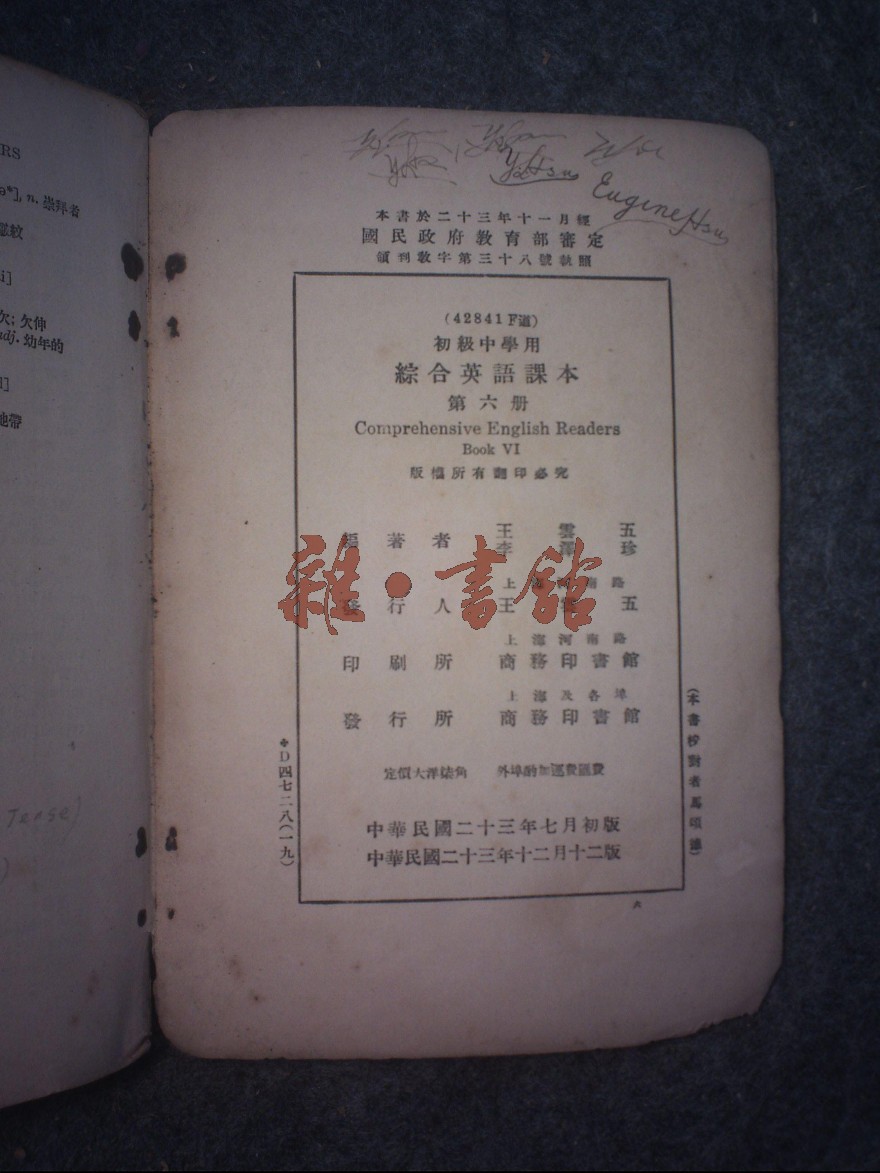 RS
ə*], n. 崇拜者
i]
欠; 欠伸
adj. 幼年的
地帶
Tense)
Ya Hsu
Eugene Hsu
本書於二十三年十一月經
國民政府教育部審定
領到教字第三十八號執照
(42841F道)
初級中學用
綜合英語課本
第六册
Comprehensive English Readers
Book VI
版權所有翻印必究
編著者 王雲五
李澤珍
上海河南路
發行人 王雲五
上海河南路
印刷所 商務印書館
上海及各埠
發行所 商務印書館
定價大洋 角 外埠酌加運費匯費
中華民國二十三年七月初版
中華民國二十三年十二月十二版
六
(本書校對者馬頌德)
D四七二八(一九)
雜·書館